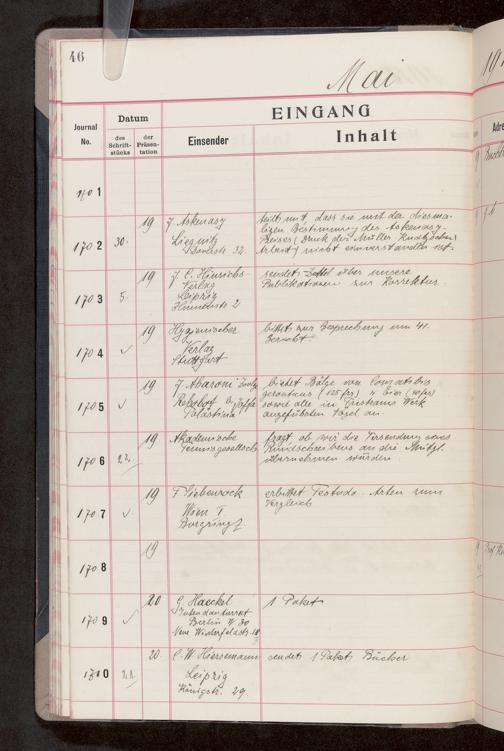 46
Mai
191
Journal
No.
Datum
des
Schrift-
stücks
der
Präsen-
tation
EINGANG
Einsender
Inhalt
Adre
1701
1702
30.
19
J. Askenasy
Liegnitz
32
teilt mit, dass sie mit der diesma-
ligen Bestimmung des Askenasy-
Preises (Druck der Müller
Arbeit) nicht einverstanden ist.
1703
5.
19
J. C. Hinrichs
Verlag
Leipzig
2
sendet Zettel über unsere
Publikationen zur Korrektur.
1704
19
Hygienischer
Verlag
Stuttgart
bittet zur Besprechung um 41.
Bericht
1705
19
J. Aharoni
Rehobot b. Jaffa
Palästina
bietet Bälge von Comatibis
(125 frs) u Eier (10 frs)
sowie alle in Tristrams Werk
angeführten Vögel an.
1706
22.
19
Akademische
fragt, ob wir die Versendung eines
Rundschreibens an die Mitgl.
übernehmen würden
1707
19
F Siebenrock
Wien I
Burgring 7
erbittet Testudo-Arten zum
Vergleich
1708
19
1709
20
G. Haeckel
Berlin W 30
Neue Winterfeldstr.
1 Paket
1710
21.
20.
C. W. Hiersemann
Leipzig
Königstr. 29
sendet 1 Paket Bücher